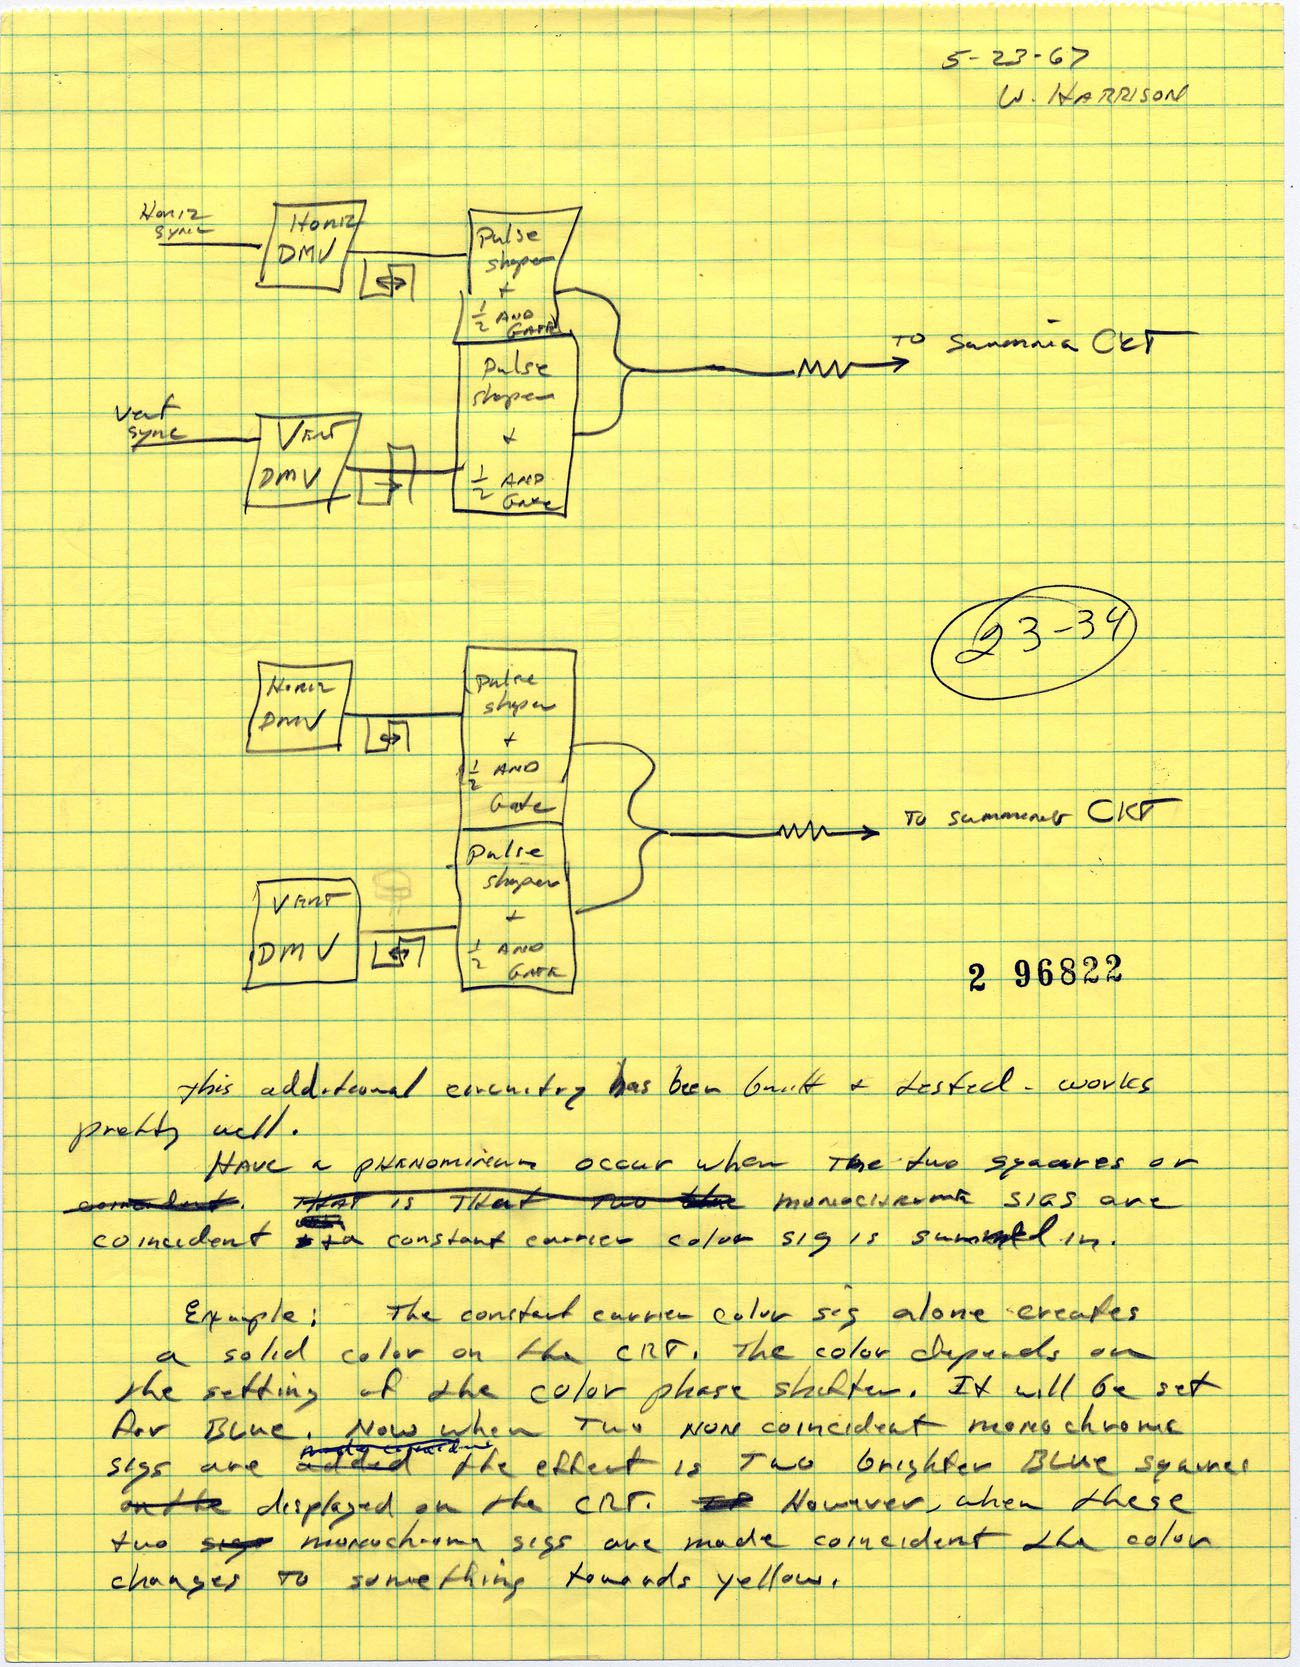 5-23-67
W. HARRISON
HORIZ
SYNC
HORIZ
DMV
Pulse
shaper
+
1/2 AND
GATE
TO Summing CKT
Pulse
shaper
+
1/2 AND
Gate
Vert
sync
VERT
DMV
23-34
HORIZ
DMV
Pulse
shaper
+
1/2 AND
Gate
TO summing CKT
Pulse
shaper
+
1/2 AND
GATE
VERT
DMV
2 96822
This additional circuitry has been built + tested - works
pretty well.
HAVE a PHENOMINEUM occur when The two squares or
coincident. THAT is THAT TWO the monochrome SIGS are
coincident + a constant carrier color sig is summed in.
Example: The constant carrier color sig alone creates
a solid color on the CRT. The color depends on
the setting of the color phase shifter. It will be set
for BLUE. Now when Two NON coincident monochrome
sigs are added the effect is Two brighter BLUE squares
on the displayed on the CRT. However, when these
two sigs monochrome sigs are made coincident the color
changes TO something towards yellow.